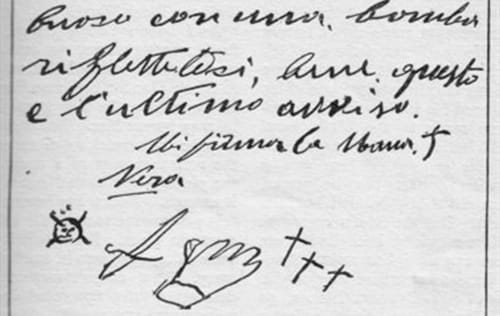 con una bomba
riflettetesi, bene. questo
e l'ultimo avviso.
Mi firmo la Mana. †
Nera
†††